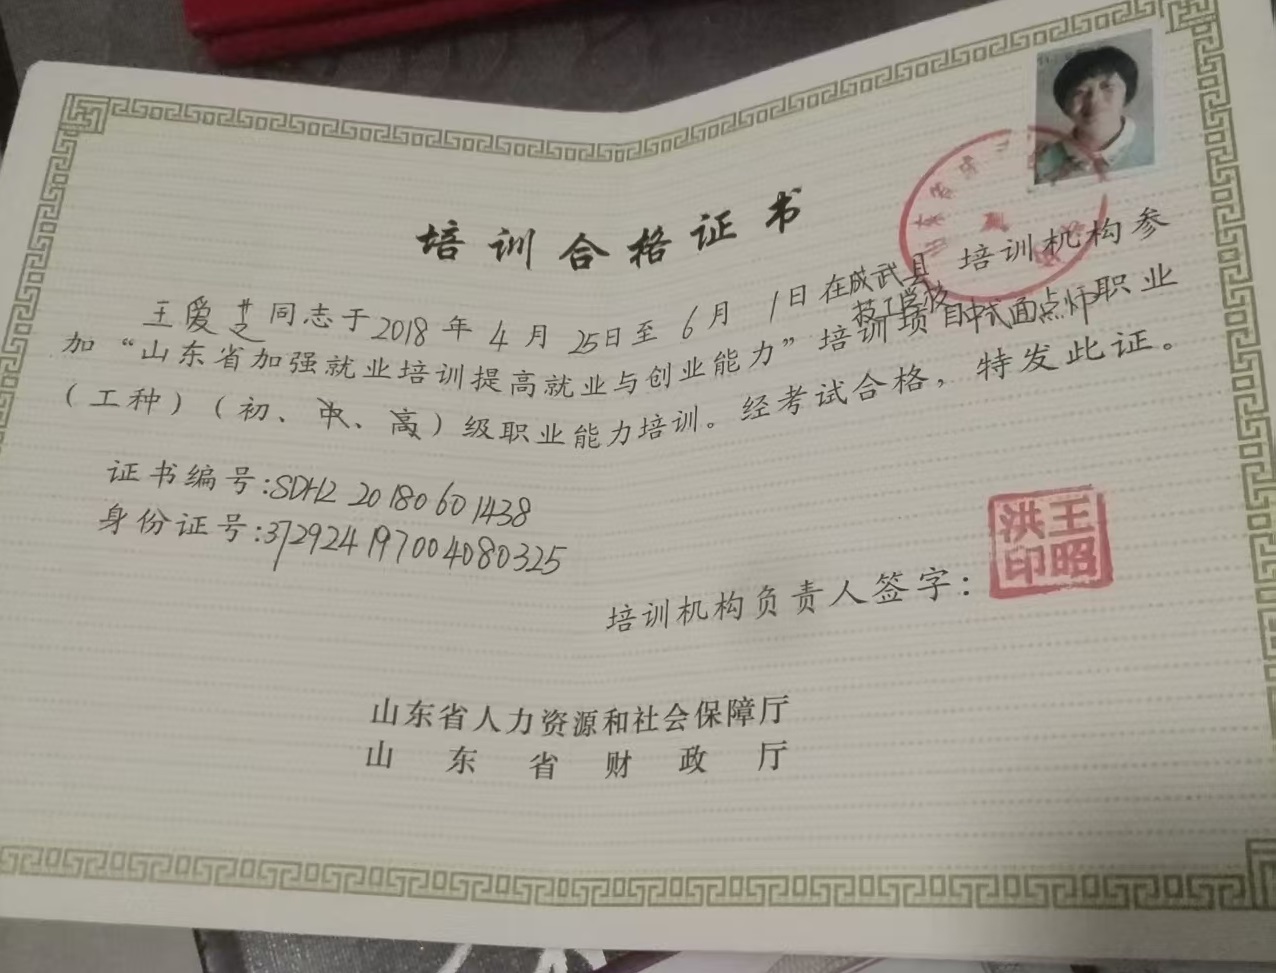 培训合格证书
王爱芝同志于2018年4月25日至6月1日在成武县技工学校培训机构参
加“山东省加强就业培训提高就业与创业能力”培训项目中式面点师职业
（工种）（初、中、高）级职业能力培训。经考试合格，特发此证。
证书编号:SDH2 20180601438
身份证号:372924197004080325
培训机构负责人签字：
王昭洪印
山东省人力资源和社会保障厅
山东省财政厅